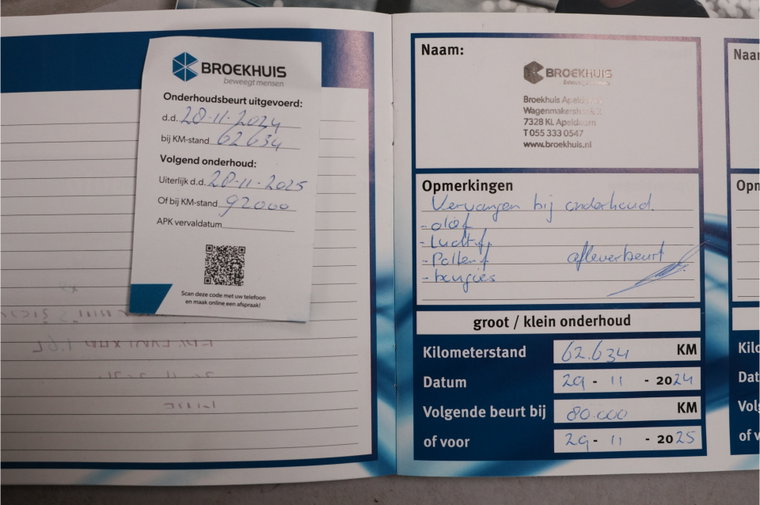 BROEKHUIS
beweegt mensen
Onderhoudsbeurt uitgevoerd:
d.d. 28-11-2024
bij KM-stand 62634
Volgend onderhoud:
Uiterlijk d.d. 28-11-2025
Of bij KM-stand 92000
APK vervaldatum
Scan deze code met uw telefoon
en maak online een afspraak!
Naam:
BROEKHUIS
Broekhuis
7328 KL Apeldoorn
T 055 333 0547
www.broekhuis.nl
Opmerkingen
Vervangen bij onderhoud.
- Luchtf.
- Pollenf
afleverbeurt
- bougies
groot / klein onderhoud
Kilometerstand 62.634 KM
Datum 29 - 11 - 2024
Volgende beurt bij 80.000 KM
of voor 29 - 11 - 2025
Naa
Opn
Kilo
Dat
Vol
of v